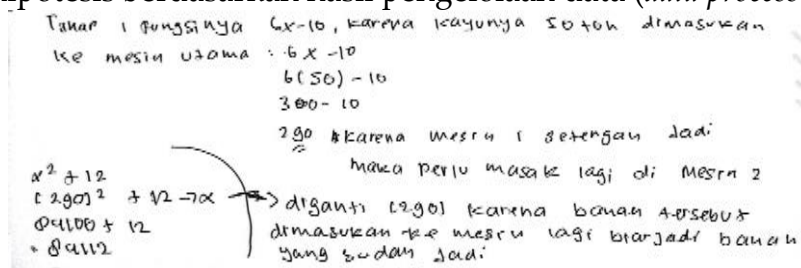 ipotesis berdasarkan hasil pengelolaan data (mini proces
Tahap 1 fungsinya 6x-10, karena kayunya 50 ton dimasukan
ke mesin utama : 6x - 10
6(50) - 10
300 - 10
290 karena mesin 1 setengah Jadi
maka perlu masak lagi di mesin 2
x² + 12
(290)² + 12 → x → diganti (290) karena bahan tersebut
84100 + 12
dimasukan ke mesin lagi biar jadi bahan
= 84112
yang sudah Jadi